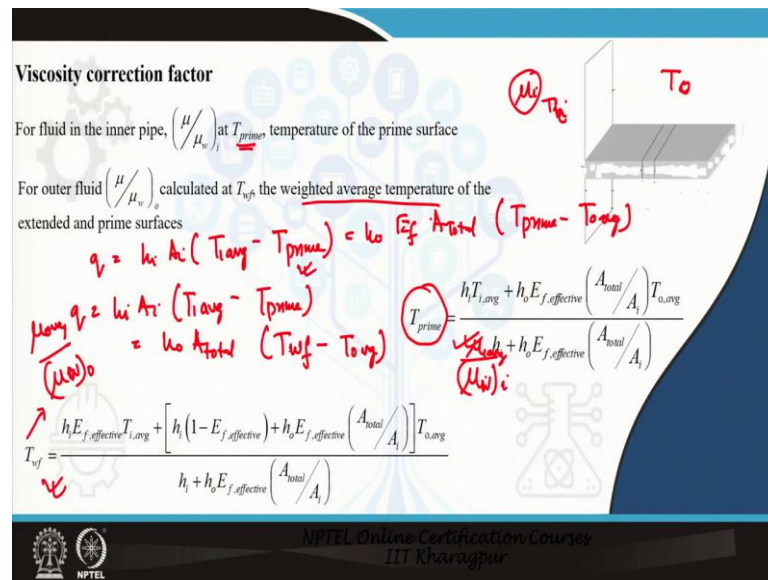 Viscosity correction factor
For fluid in the inner pipe, (μ/μ_w)_i at T_prime, temperature of the prime surface
For outer fluid (μ/μ_w)_o calculated at T_wf, the weighted average temperature of the
extended and prime surfaces
μ_i
T_o
q = h_i A_i (T_i avg - T_prime) = h_o E_f A_Total (T_prime - T_o avg)
q = h_i A_i (T_i avg - T_prime)
= h_o A_total (T_wf - T_o avg)
μ_avg/(μ_w)_o
T_prime = (h_i T_i,avg + h_o E_f,effective (A_total/A_i) T_o,avg) / (h_i + h_o E_f,effective (A_total/A_i))
(μ_w)_i
T_wf = (h_i E_f,effective T_i,avg + [h_i (1 - E_f,effective) + h_o E_f,effective (A_total/A_i)] T_o,avg) / (h_i + h_o E_f,effective (A_total/A_i))
NPTEL Online Certification Courses
IIT Kharagpur
NPTEL